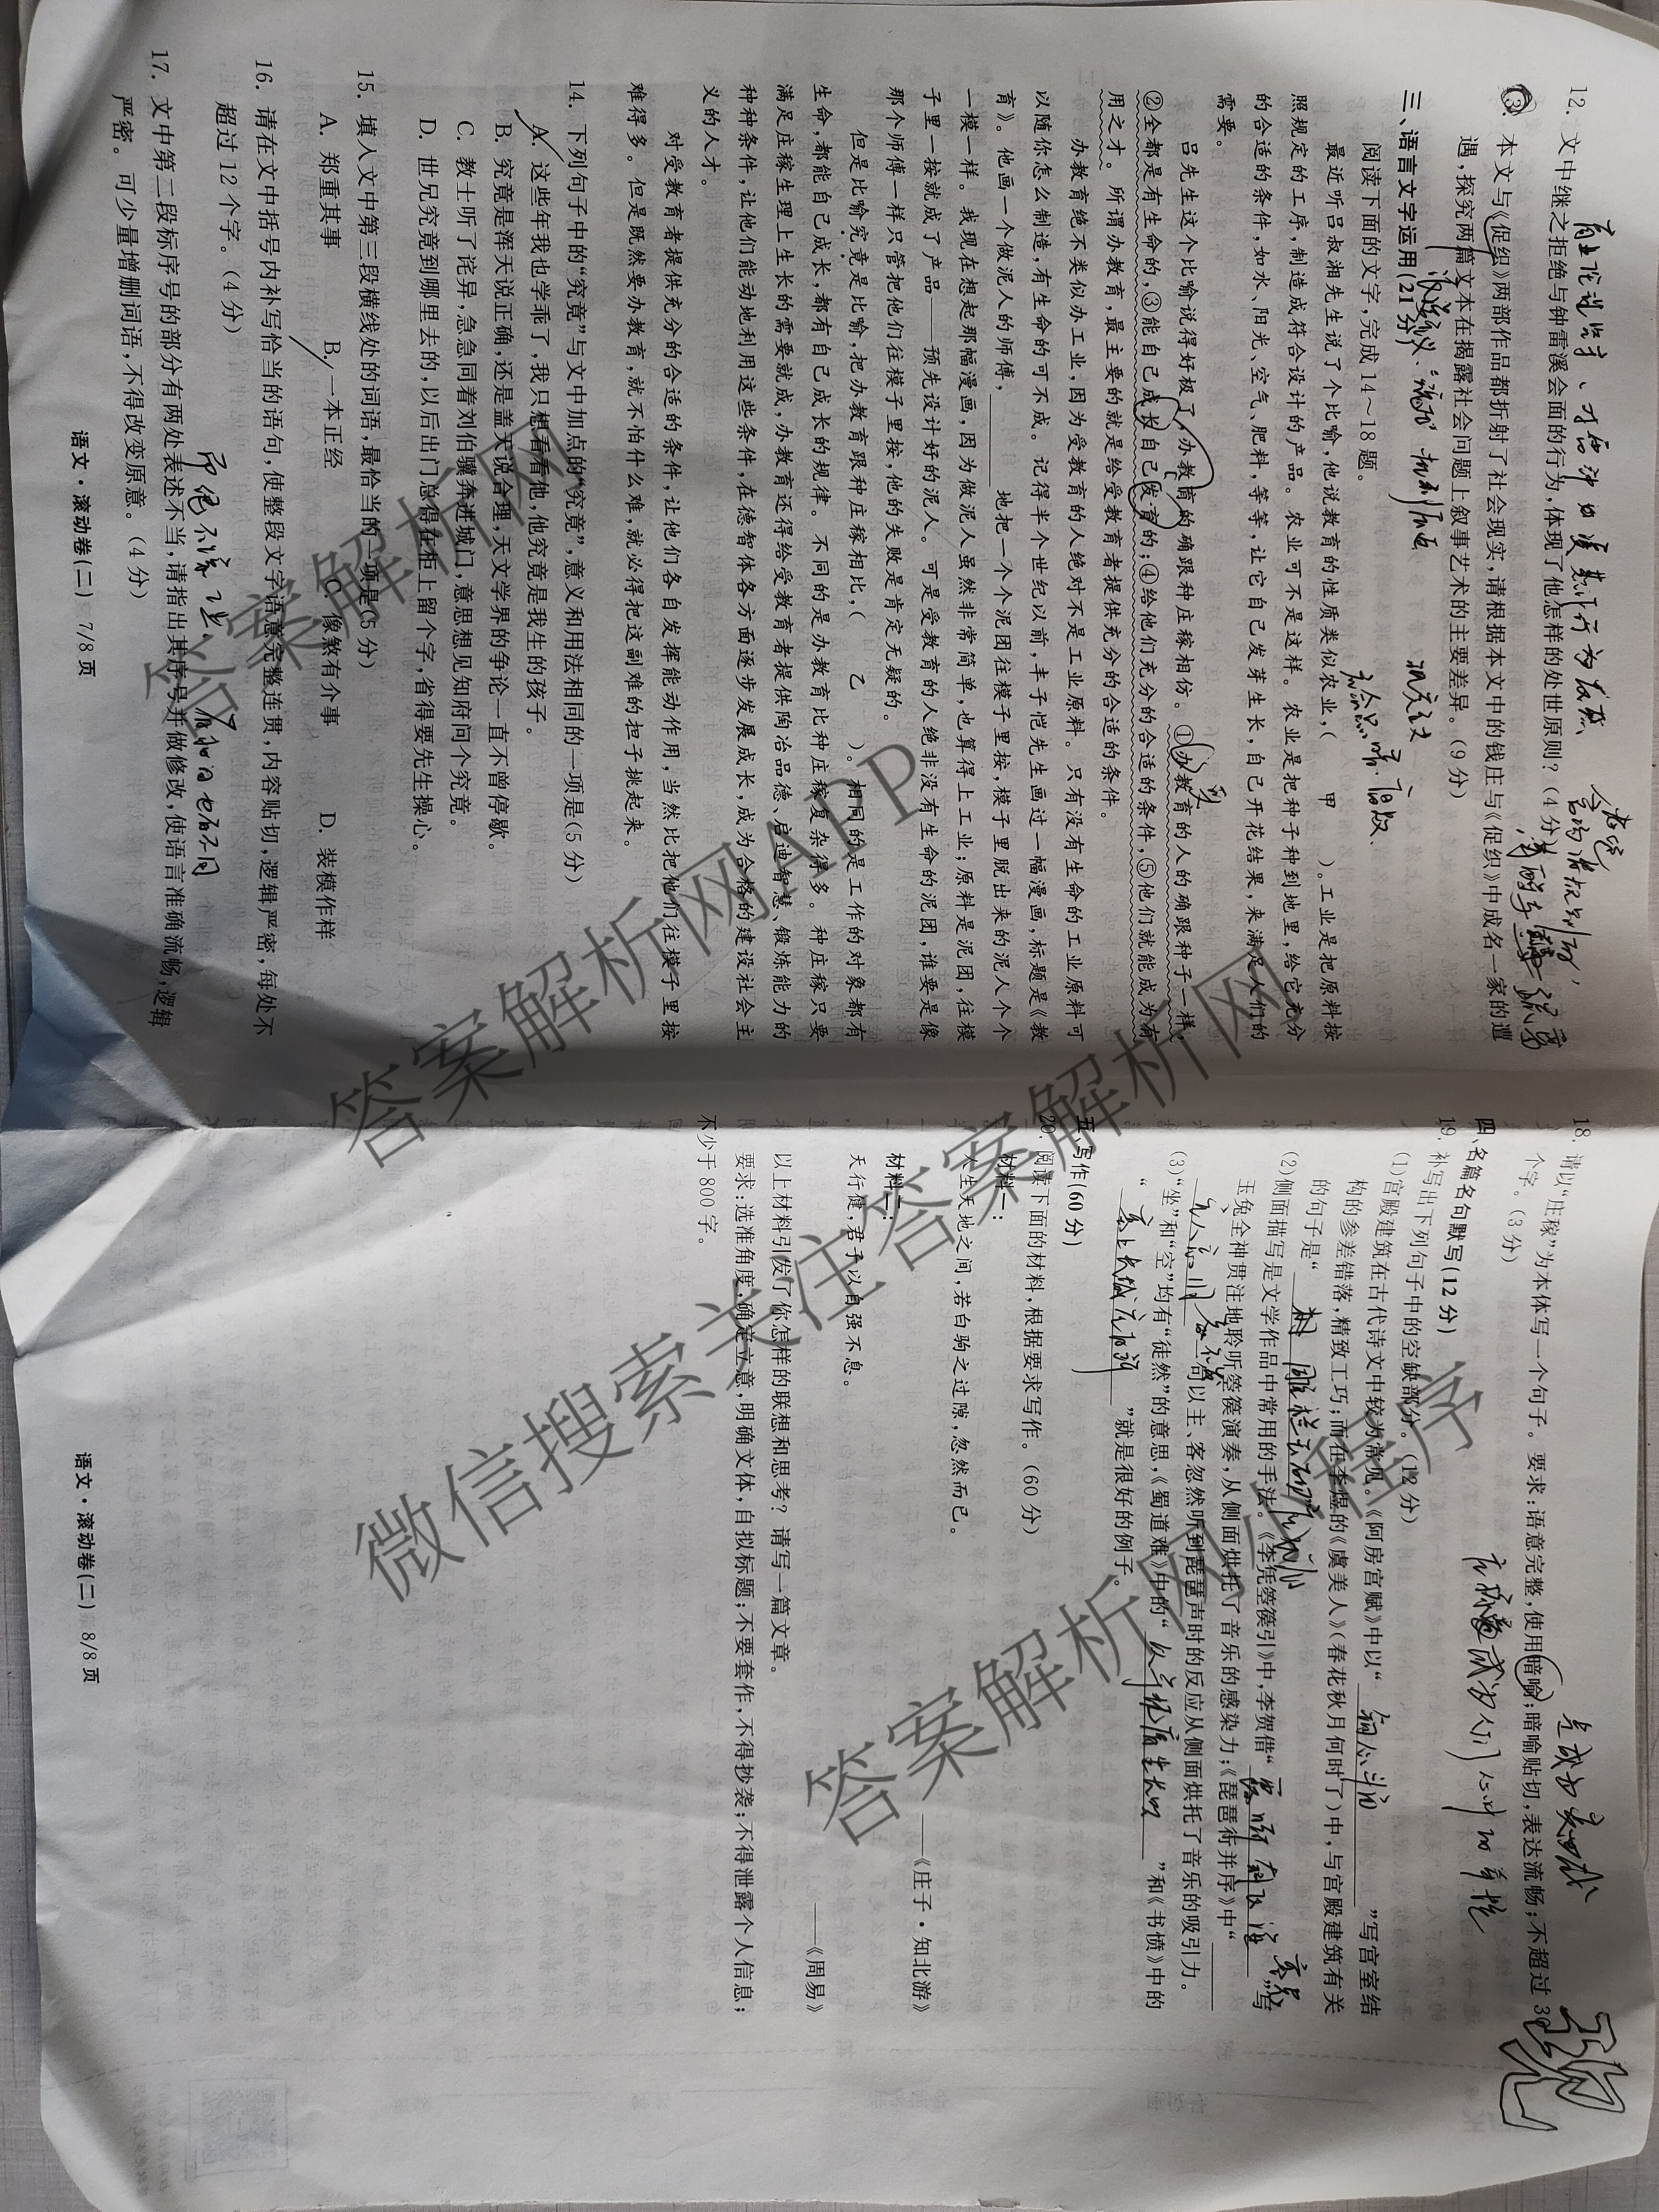 12. 文中继之拒绝与钟雷溪会面的行为,体现了他怎样的处世原则?(4分)
13. 本文与《促织》两部作品都折射了社会现实,请根据本文中的钱庄与《促织》中成名一家的遭
遇,探究两篇文本在揭露社会问题上叙事艺术的主要差异。(9分)
三、语言文字运用(21分)
阅读下面的文字,完成14~18题。
最近听吕叔湘先生说了个比喻,他说教育的性质类似农业,( 甲 )。工业是把原料按
照规定的工序,制造成符合设计的产品。农业可不是这样。农业是把种子种到地里,给它充分
的合适的条件,如水、阳光、空气,肥料,等等,让它自己发芽生长,自己开花结果,来满足人们的
需要。
吕先生这个比喻说得好极了,办教育的确跟种庄稼相仿。①办教育的人的确跟种子一样,
②全都是有生命的,③能自己成长自己发育的;④给他们充分的合适的条件,⑤他们就能成为有
用之才。所谓办教育,最主要的就是给受教育者提供充分的合适的条件。
办教育绝不类似办工业,因为受教育的人绝对不是工业原料。只有没有生命的工业原料可
以随你怎么制造,有生命的可不成。记得半个世纪以前,丰子恺先生画过一幅漫画,标题是《教
育》。他画一个做泥人的师傅,______地把一个个泥团往模子里按,模子里脱出来的泥人个个
一模一样。我现在想起那幅漫画,因为做泥人虽然非常简单,也算得上工业;原料是泥团,往模
子里一按就成了产品——预先设计好的泥人。可是受教育的人绝非没有生命的泥团,谁要是像
那个师傅一样只管把他们往模子里按,他的失败是肯定无疑的。
但是比喻究竟是比喻,把办教育跟种庄稼相比,( 乙 )。相同的是工作的对象都有
生命,都能自己成长,都有自己成长的规律。不同的是办教育比种庄稼复杂得多。种庄稼只要
满足庄稼生理上生长的需要就成,办教育还得给受教育者提供陶冶品德、启迪智慧、锻炼能力的
种种条件,让他们能动地利用这些条件,在德智体各方面逐步发展成长,成为合格的建设社会主
义的人才。
对受教育者提供充分的合适的条件,让他们各自发挥能动作用,当然比把他们往模子里按
难得多。但是既然要办教育,就不怕什么难,就必得把这副难的担子挑起来。
14. 下列句子中的“究竟”与文中加点的“究竟”,意义和用法相同的一项是(5分)
A. 这些年我也学乖了,我只想看看他,他究竟是我生的孩子。
B. 究竟是浑天说正确,还是盖天说合理,天文学界的争论一直不曾停歇。
C. 教士听了诧异,急急同着刘伯骥奔进城门,意思想见知府问个究竟。
D. 世兄究竟到哪里去的,以后出门总得在柜上留个字,省得要先生操心。
15. 填入文中第三段横线处的词语,最恰当的一项是(5分)
A. 郑重其事 B. 一本正经 C. 像煞有介事 D. 装模作样
16. 请在文中括号内补写恰当的语句,使整段文字语意完整连贯,内容贴切,逻辑严密,每处不
超过12个字。(4分)
17. 文中第二段标序号的部分有两处表述不当,请指出其序号并做修改,使语言准确流畅,逻辑
严密。可少量增删词语,不得改变原意。(4分)
语文·滚动卷(二) 7/8页
18. 请以“庄稼”为本体写一个句子。要求:语意完整,使用暗喻;暗喻贴切,表达流畅;不超过30
个字。(3分)
四、名篇名句默写(12分)
19. 补写出下列句子中的空缺部分。(12分)
(1)宫殿建筑在古代诗文中较为常见。《阿房宫赋》中以“钩心斗角”写宫室结
构的参差错落,精致工巧;而在李煜的《虞美人》(春花秋月何时了)中,与宫殿建筑有关
的句子是“雕栏玉砌应犹在”
(2)侧面描写是文学作品中常用的手法。《李凭箜篌引》中,李贺借“______”写
玉兔全神贯注地聆听箜篌演奏,从侧面烘托了音乐的感染力;《琵琶行并序》中“______
______”句以主、客忽然听到琵琶声时的反应从侧面烘托了音乐的吸引力。
(3)“坐”和“空”均有“徒然”的意思,《蜀道难》中的“以手抚膺坐长叹”和《书愤》中的
“塞上长城空自许”就是很好的例子。
五、写作(60分)
20. 阅读下面的材料,根据要求写作。(60分)
材料一:
人生天地之间,若白驹之过隙,忽然而已。
——《庄子·知北游》
材料二:
天行健,君子以自强不息。
——《周易》
以上材料引发了你怎样的联想和思考?请写一篇文章。
要求:选准角度,确定立意,明确文体,自拟标题;不要套作,不得抄袭;不得泄露个人信息;
不少于800字。
语文·滚动卷(二) 8/8页
答案解析网
答案解析网APP
微信搜索关注答案解析网小程序
答案解析网